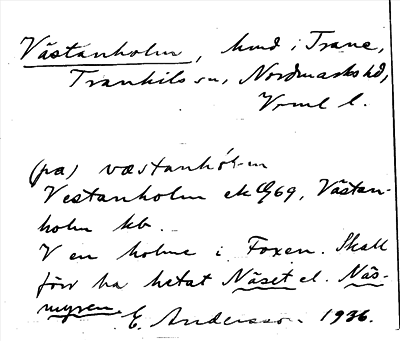 Västanholm, hmd i Trane,
Trankils sn, Nordmarks hd,
Vrml l.
(pa) væstanhól-m
Vestanholm ek G69, Västan-
holm kb.
V en holme i Foxen. Skall
förr ha hetat Näset el. Näs-
myren. E. Andersson. 1936.